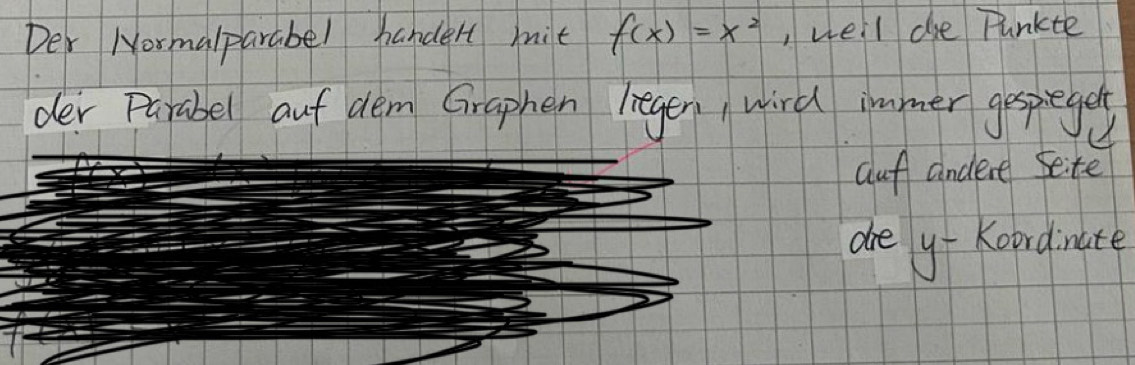 Der Normalparabel handelt mit f(x) = x², weil die Punkte
der Parabel auf dem Graphen liegen, wird immer gespiegelt
auf andere Seite
die y-Koordinate